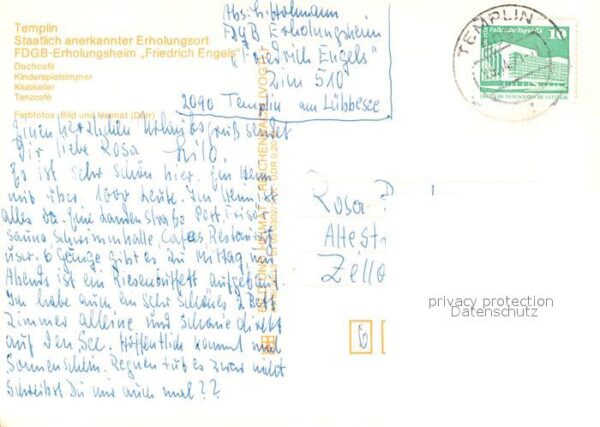 Templin
Staatlich anerkannter Erholungsort
FDGB-Erholungsheim „Friedrich Engels“
Dachcafé
Kinderspielzimmer
Klubkeller
Tanzcafé
Farbfotos: Bild und Heimat (Dörr)
Abs. Hoffmann
FDGB Erholungsheim
"Friedrich Engels"
Zim 510
2090 Templin am Lübbesee
TEMPLIN
Palast der Republik
10
Einen herzlichen Urlaubsgruß sendet
Dir liebe Rosa Lilo.
Es ist sehr schön hier. Ein Heim
mit über 1000 Leute. Im Heim ist
alles da. Eine Ladenstraße Post, Frisör
Sauna, Schwimmhalle Cafes, Restaurant
usw. 6 Gänge gibt es zu Mittag und
Abends ist ein Riesenbüffett aufgebaut.
Ich habe auch ein sehr schönes 2 Bett
Zimmer alleine und schaue direkt
auf den See. Hoffentlich kommt mal
Sonnenschein. Regnen tut es zwar nicht
Schreibst Du mir auch mal??
Rosa P
Altestr
Zella
6
privacy protection
Datenschutz